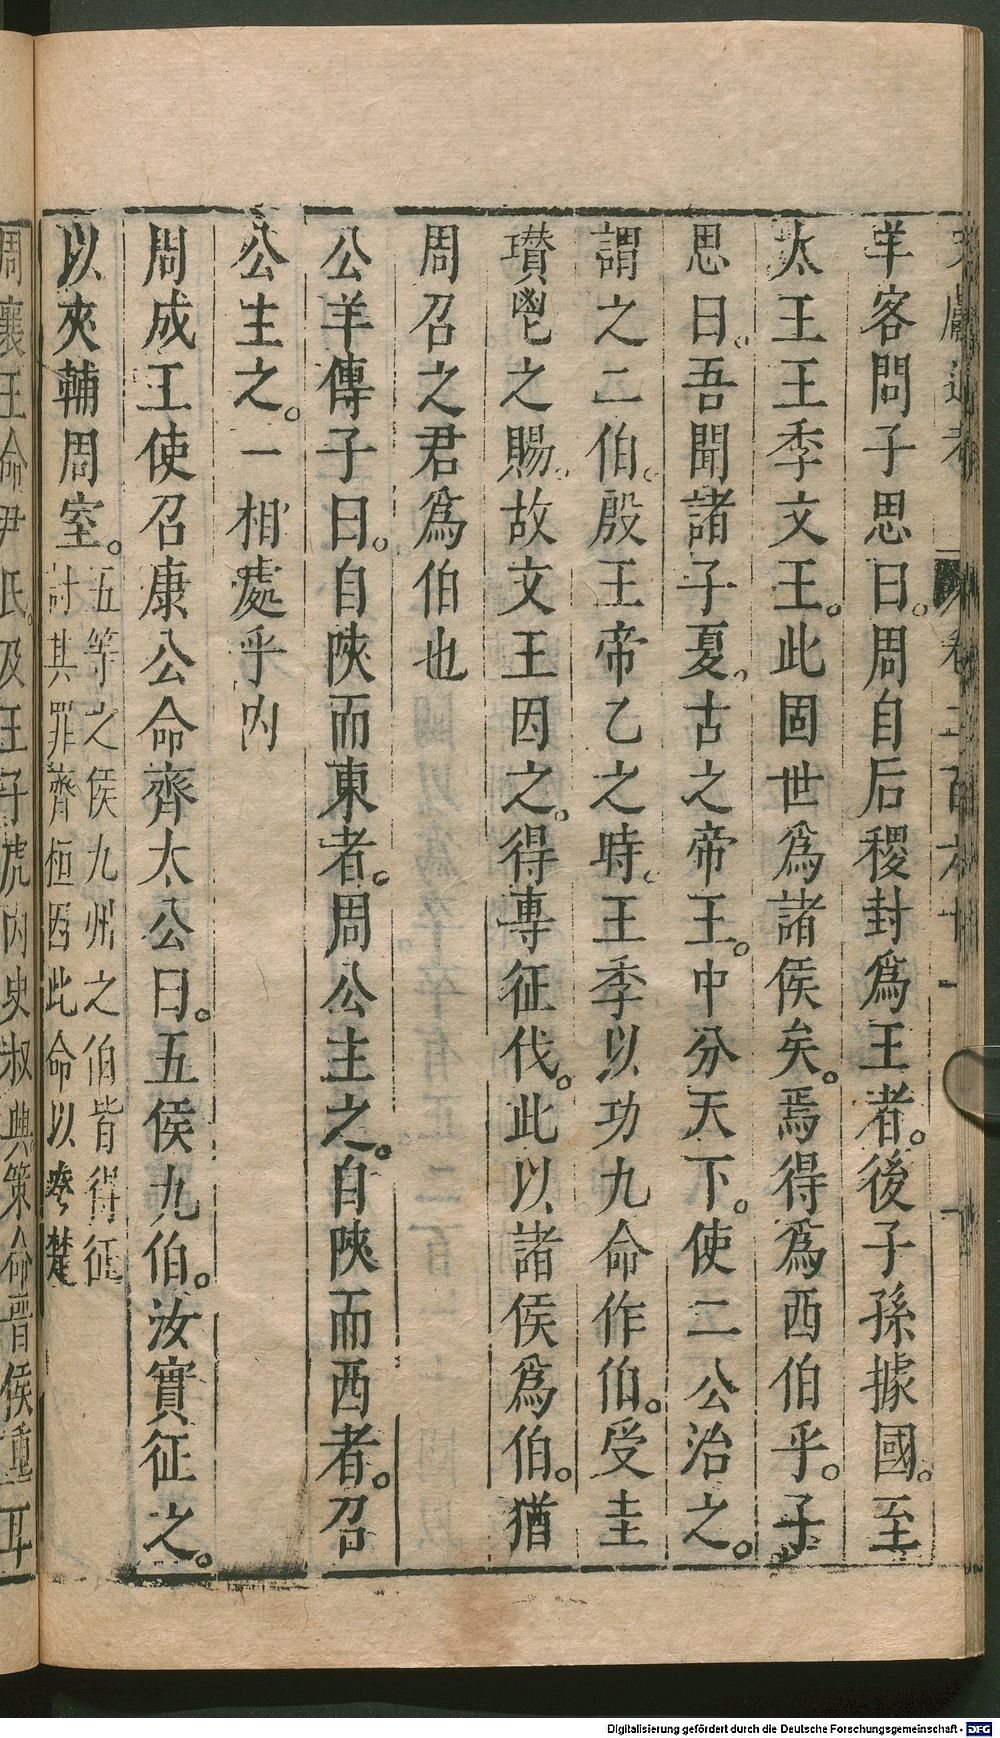 文獻通考 卷二百六十一
羊客問子思曰。周自后稷封爲王者。後子孫據國。至
太王王季文王。此固世爲諸侯矣。焉得爲西伯乎。子
思曰。吾聞諸子夏。古之帝王。中分天下。使二公治之。
謂之二伯。殷王帝乙之時。王季以功九命作伯。受圭
瓚鬯之賜。故文王因之。得專征伐。此以諸侯爲伯。猶
周召之君爲伯也
公羊傳子曰。自陝而東者。周公主之。自陝而西者。召
公主之。一相處乎内
周成王使召康公命齊太公曰。五侯九伯。汝實征之。
以夾輔周室。五等之侯九州之伯皆得征
討其罪齊桓因此命以夸楚
周襄王命尹氏。及王子虎内史叔興策命晉侯重耳
Digitalisierung gefördert durch die Deutsche Forschungsgemeinschaft - DFG